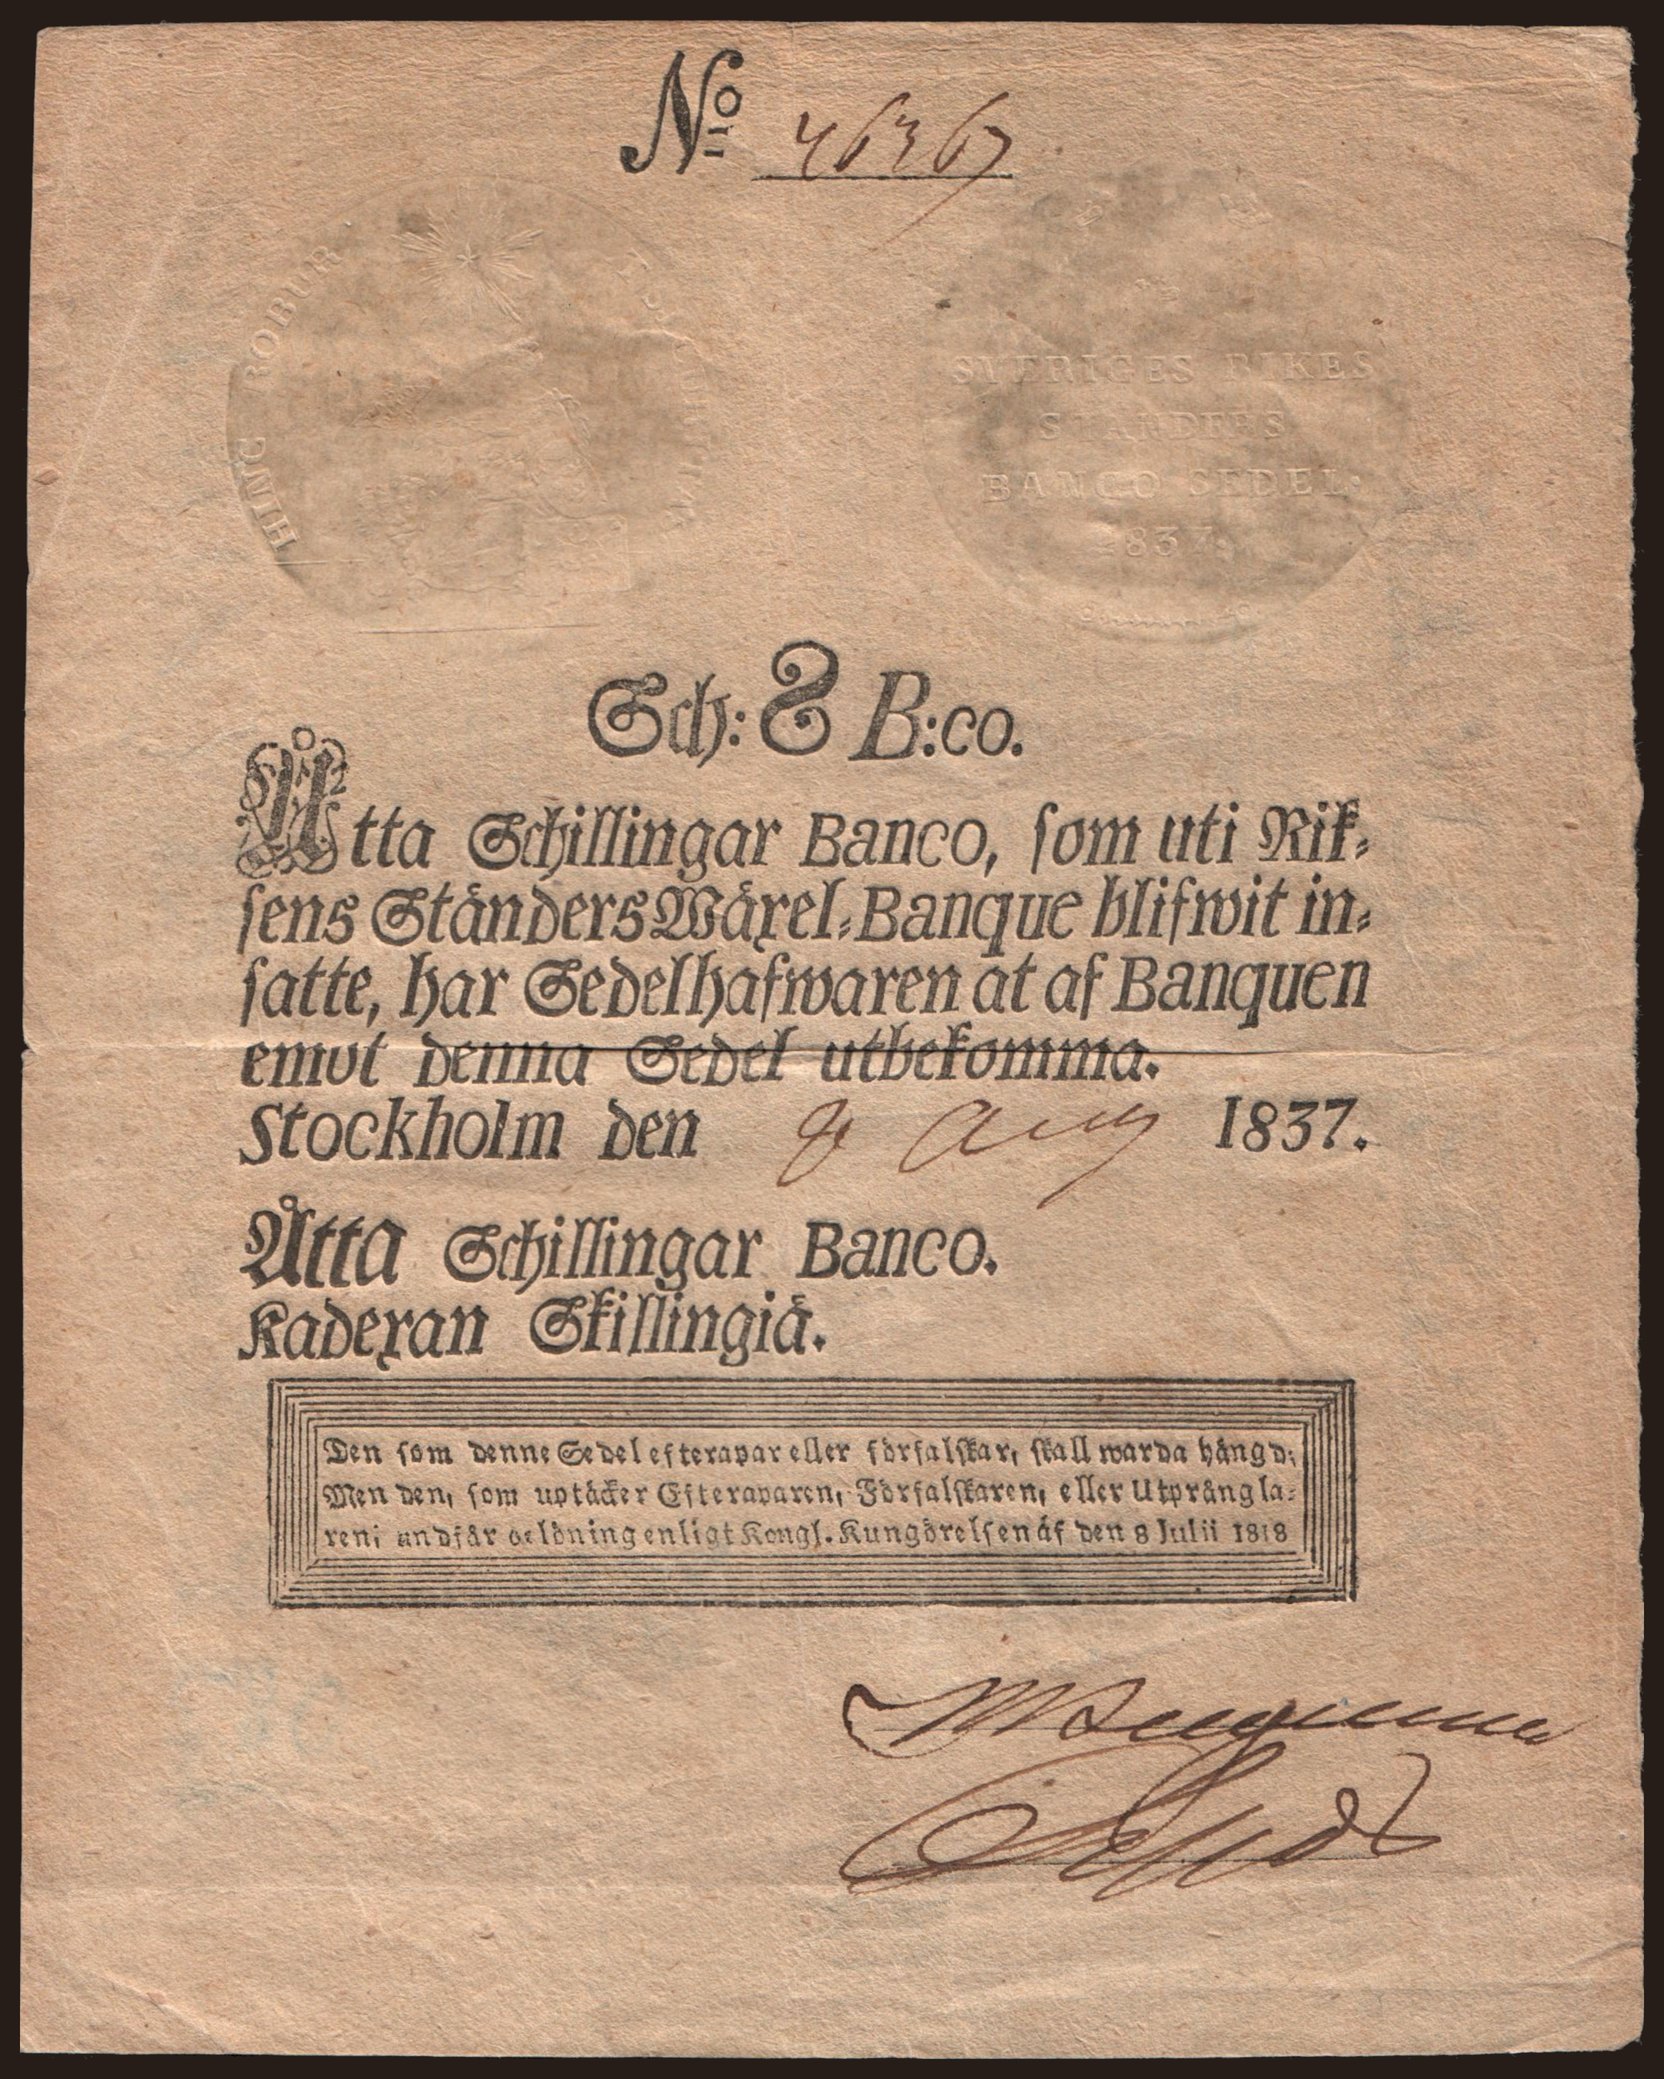 No 46367
HINC ROBUR
SVERIGES RIKES
STÄNDERS
BANCO SEDEL.
1837.
Sch: 8 B:co.
Åtta Schillingar Banco, som uti Rik-
sens Ständers Wäxel-Banque blifwit in-
satte, har Sedelhafwaren at af Banquen
emot denna Sedel utbekomma.
Stockholm den 8 Aug 1837.
Åtta Schillingar Banco.
Kadexan Skillingiä.
Den som denne Sedel efterapar eller förfalskar, skall warda hängd;
Men den, som uptäcker Efteraparen, Förfalskaren, eller Utprångla-
ren; undfår belöning enligt Kongl. Kungörelsen af den 8 Julii 1818